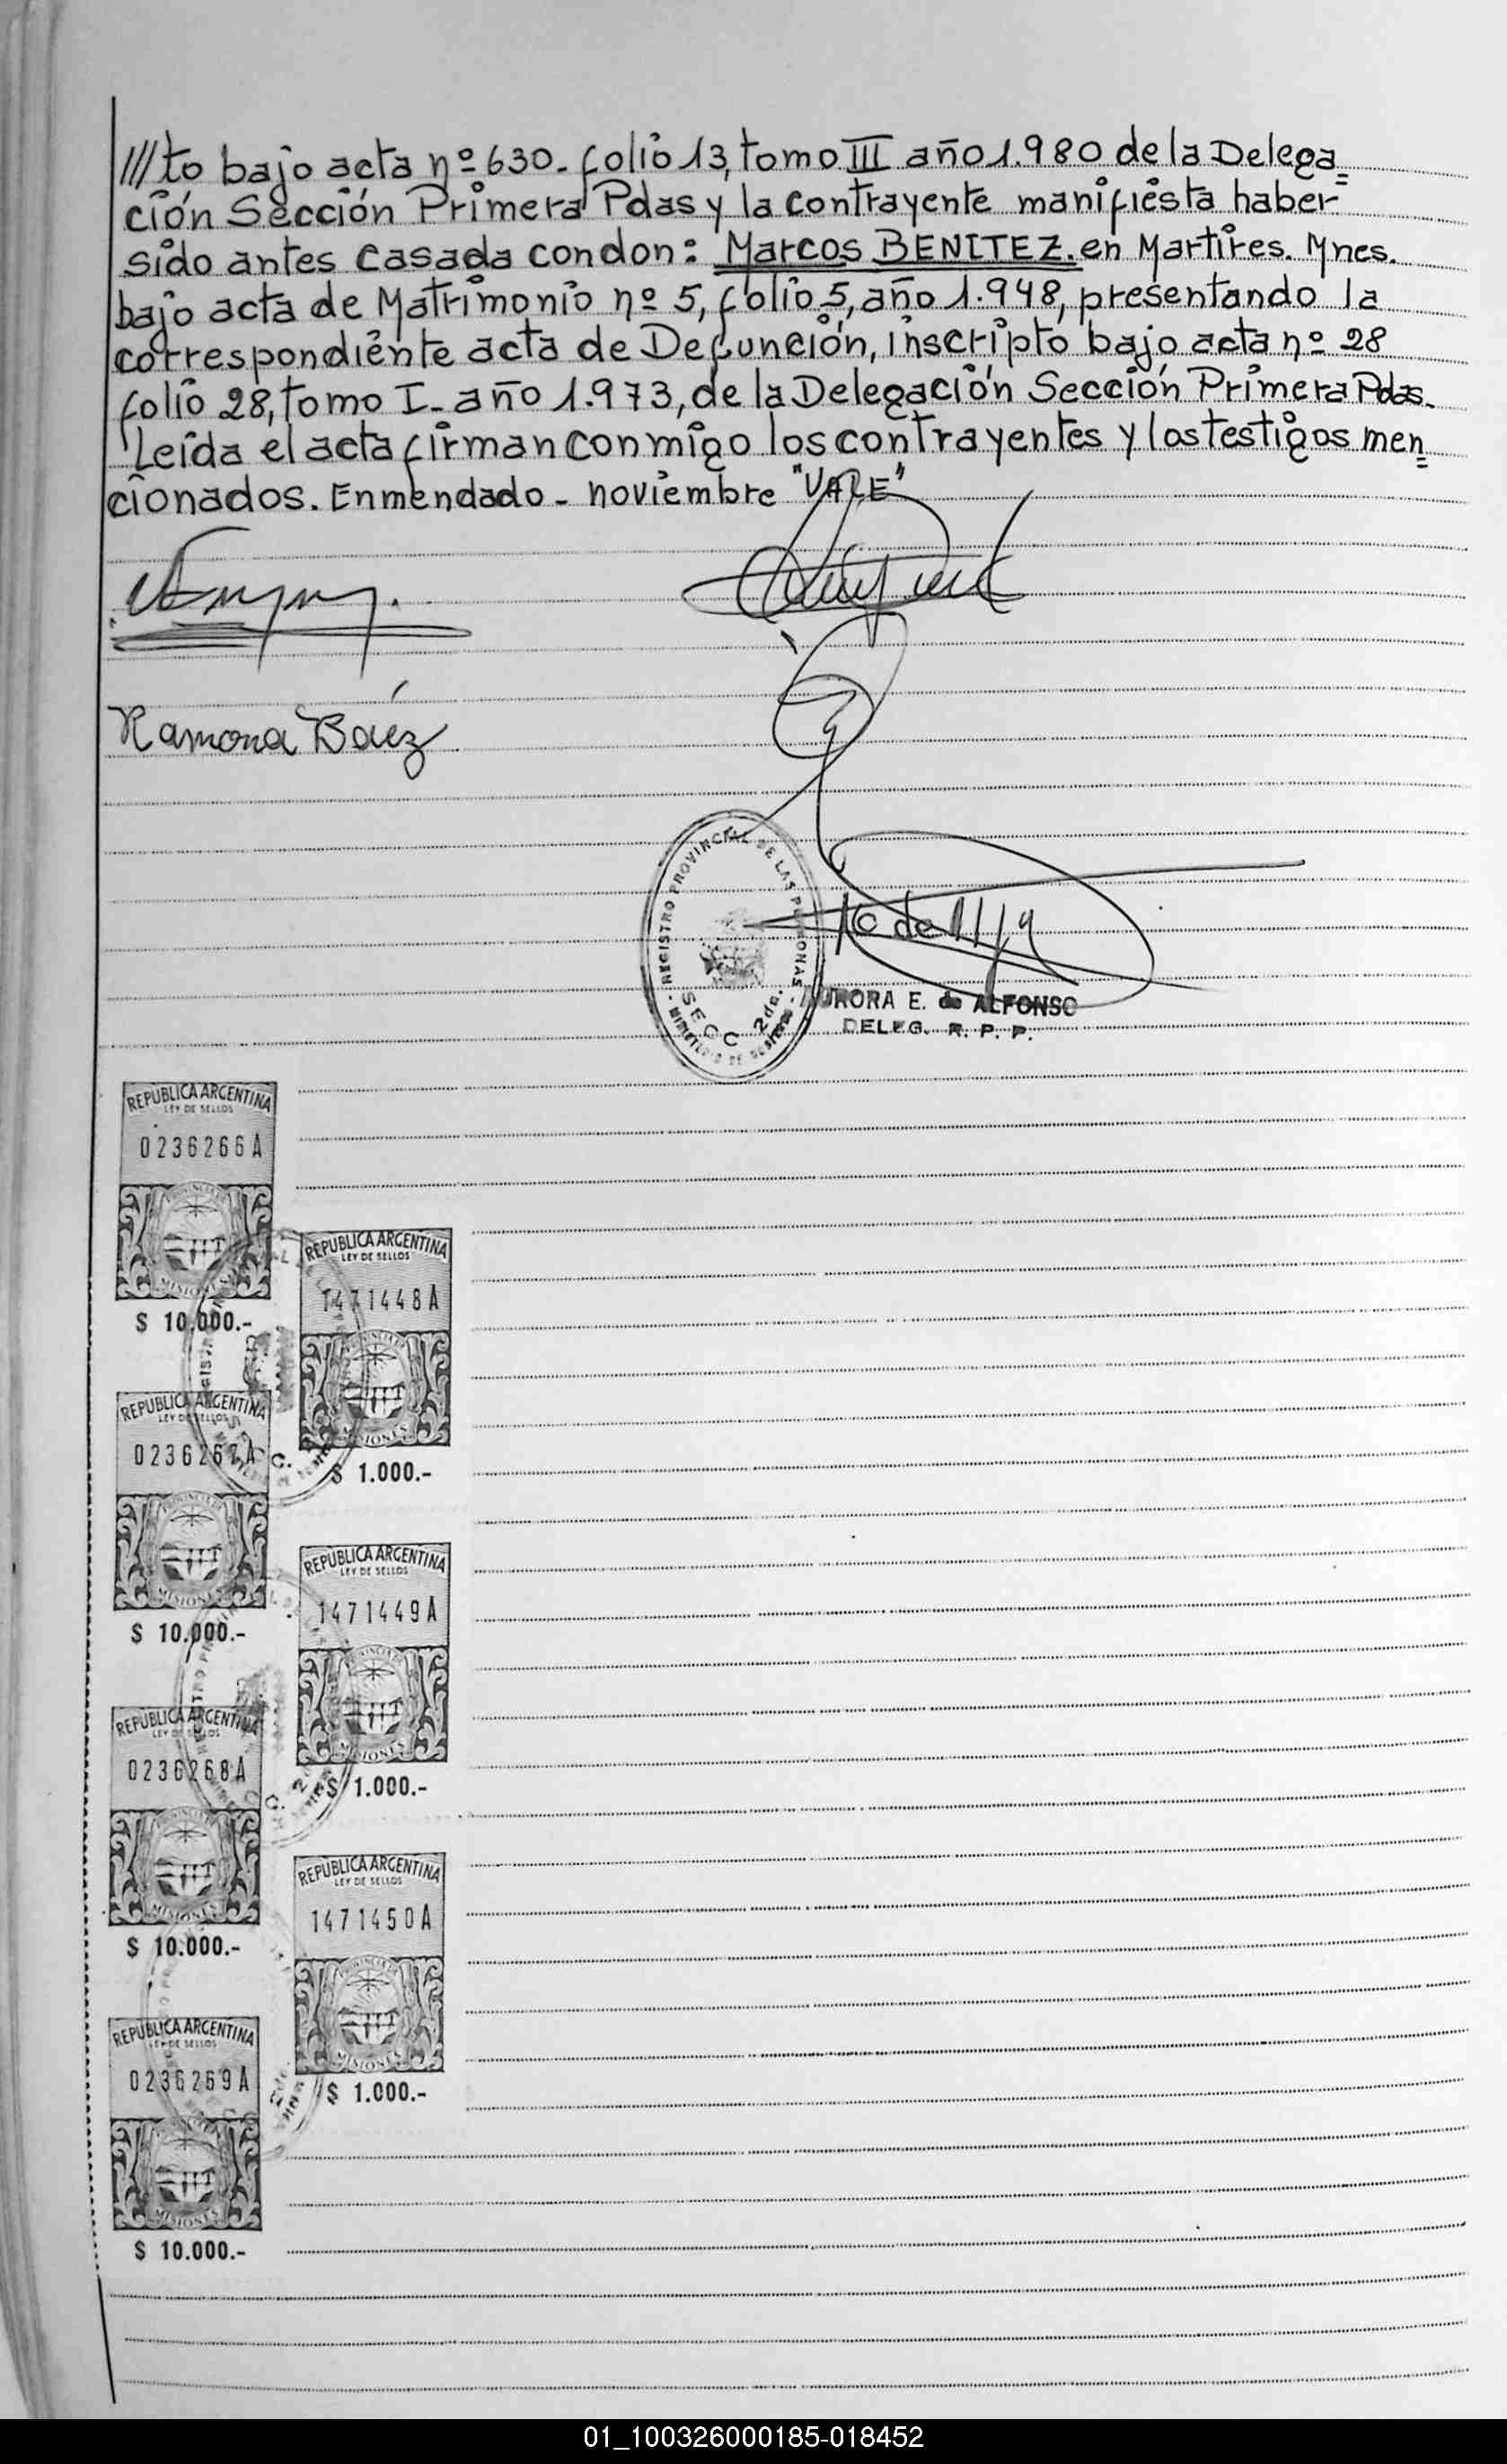 ///to bajo acta nº 630_ folio 13, tomo III año 1.980 de la Delega=
ción Sección Primera Pdas y la contrayente manifiesta haber
sido antes casada con don: Marcos BENITEZ. en Martires. Mnes.
bajo acta de Matrimonio nº 5, folio 5, año 1.948, presentando la
correspondiente acta de Defunción, inscripto bajo acta nº 28
folio 28, tomo I_ año 1.973, de la Delegación Sección Primera Pdas.
Leída el acta firman conmigo los contrayentes y los testigos men=
cionados. Enmendado_ noviembre "VALE"
Ramona Báez
REGISTRO PROVINCIAL DE LAS PERSONAS
SECC 2da.
AURORA E. de ALFONSO
DELEG. R. P. P.
REPUBLICA ARGENTINA
LEY DE SELLOS
0236266A
MISIONES
$ 10.000.-
REPUBLICA ARGENTINA
LEY DE SELLOS
1471448A
MISIONES
$ 1.000.-
REPUBLICA ARGENTINA
LEY DE SELLOS
0236267A
MISIONES
$ 10.000.-
REPUBLICA ARGENTINA
LEY DE SELLOS
1471449A
MISIONES
$ 1.000.-
REPUBLICA ARGENTINA
LEY DE SELLOS
0236268A
MISIONES
$ 10.000.-
REPUBLICA ARGENTINA
LEY DE SELLOS
1471450A
MISIONES
$ 1.000.-
REPUBLICA ARGENTINA
LEY DE SELLOS
0236269A
MISIONES
$ 10.000.-
01_100326000185-018452